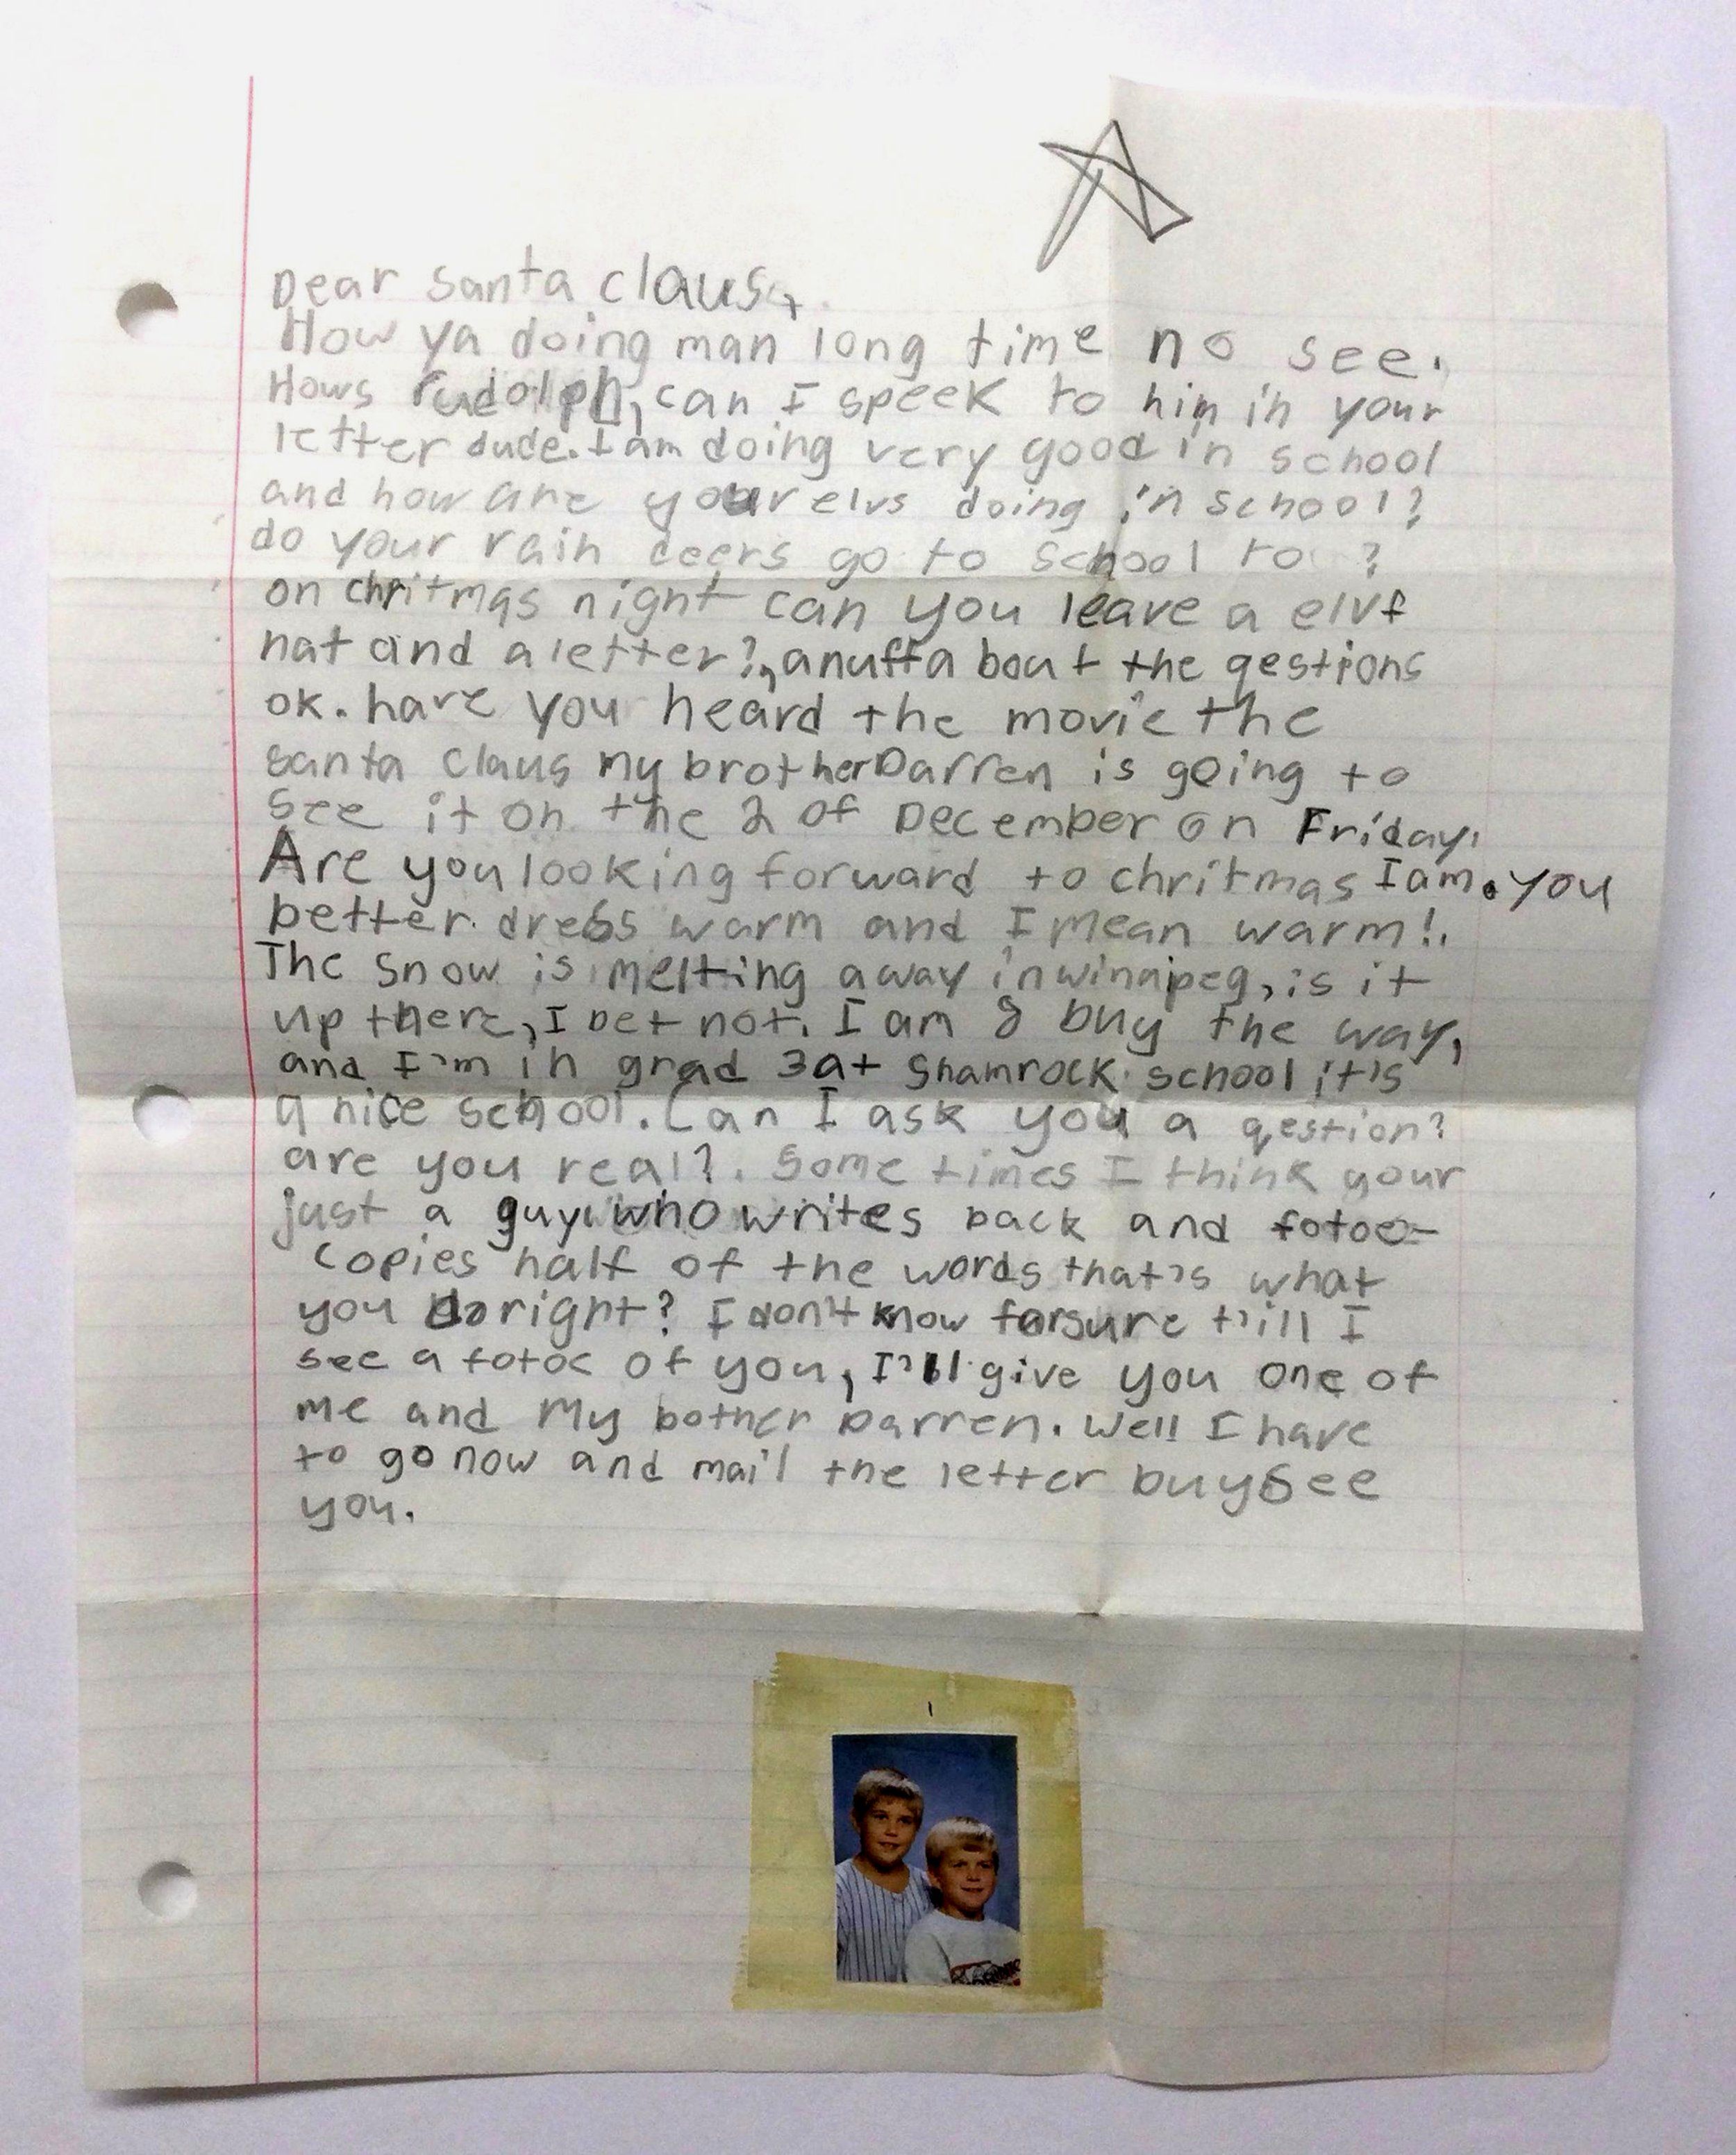 Dear Santa Claus,
How ya doing man long time no see.
Hows Rudolph, can I speek to him in your
letter dude. I am doing very good in school
and how are your elvs doing in school?
do your rain deers go to school to ?
on chritmas night can you leave a elvf
hat and a letter?, anuff a bout the qestions
ok. have you heard the movie the
santa claus my brother Darren is going to
see it on the 2 of December on Friday.
Are you looking forward to chritmas I am. you
better dress warm and I mean warm!.
The snow is melting away in winnipeg, is it
up there, I bet not. I am 8 buy the way,
and I'm in grad 3 at Shamrock school it's
a nice school. Can I ask you a qestion?
are you real?. Some times I think your
just a guy who writes back and fotoe-
copies half of the words that's what
you do right? I don't know for sure t'ill I
see a fotoe of you, I'll give you one of
me and My bother Darren. Well I have
to go now and mail the letter buy see
you.